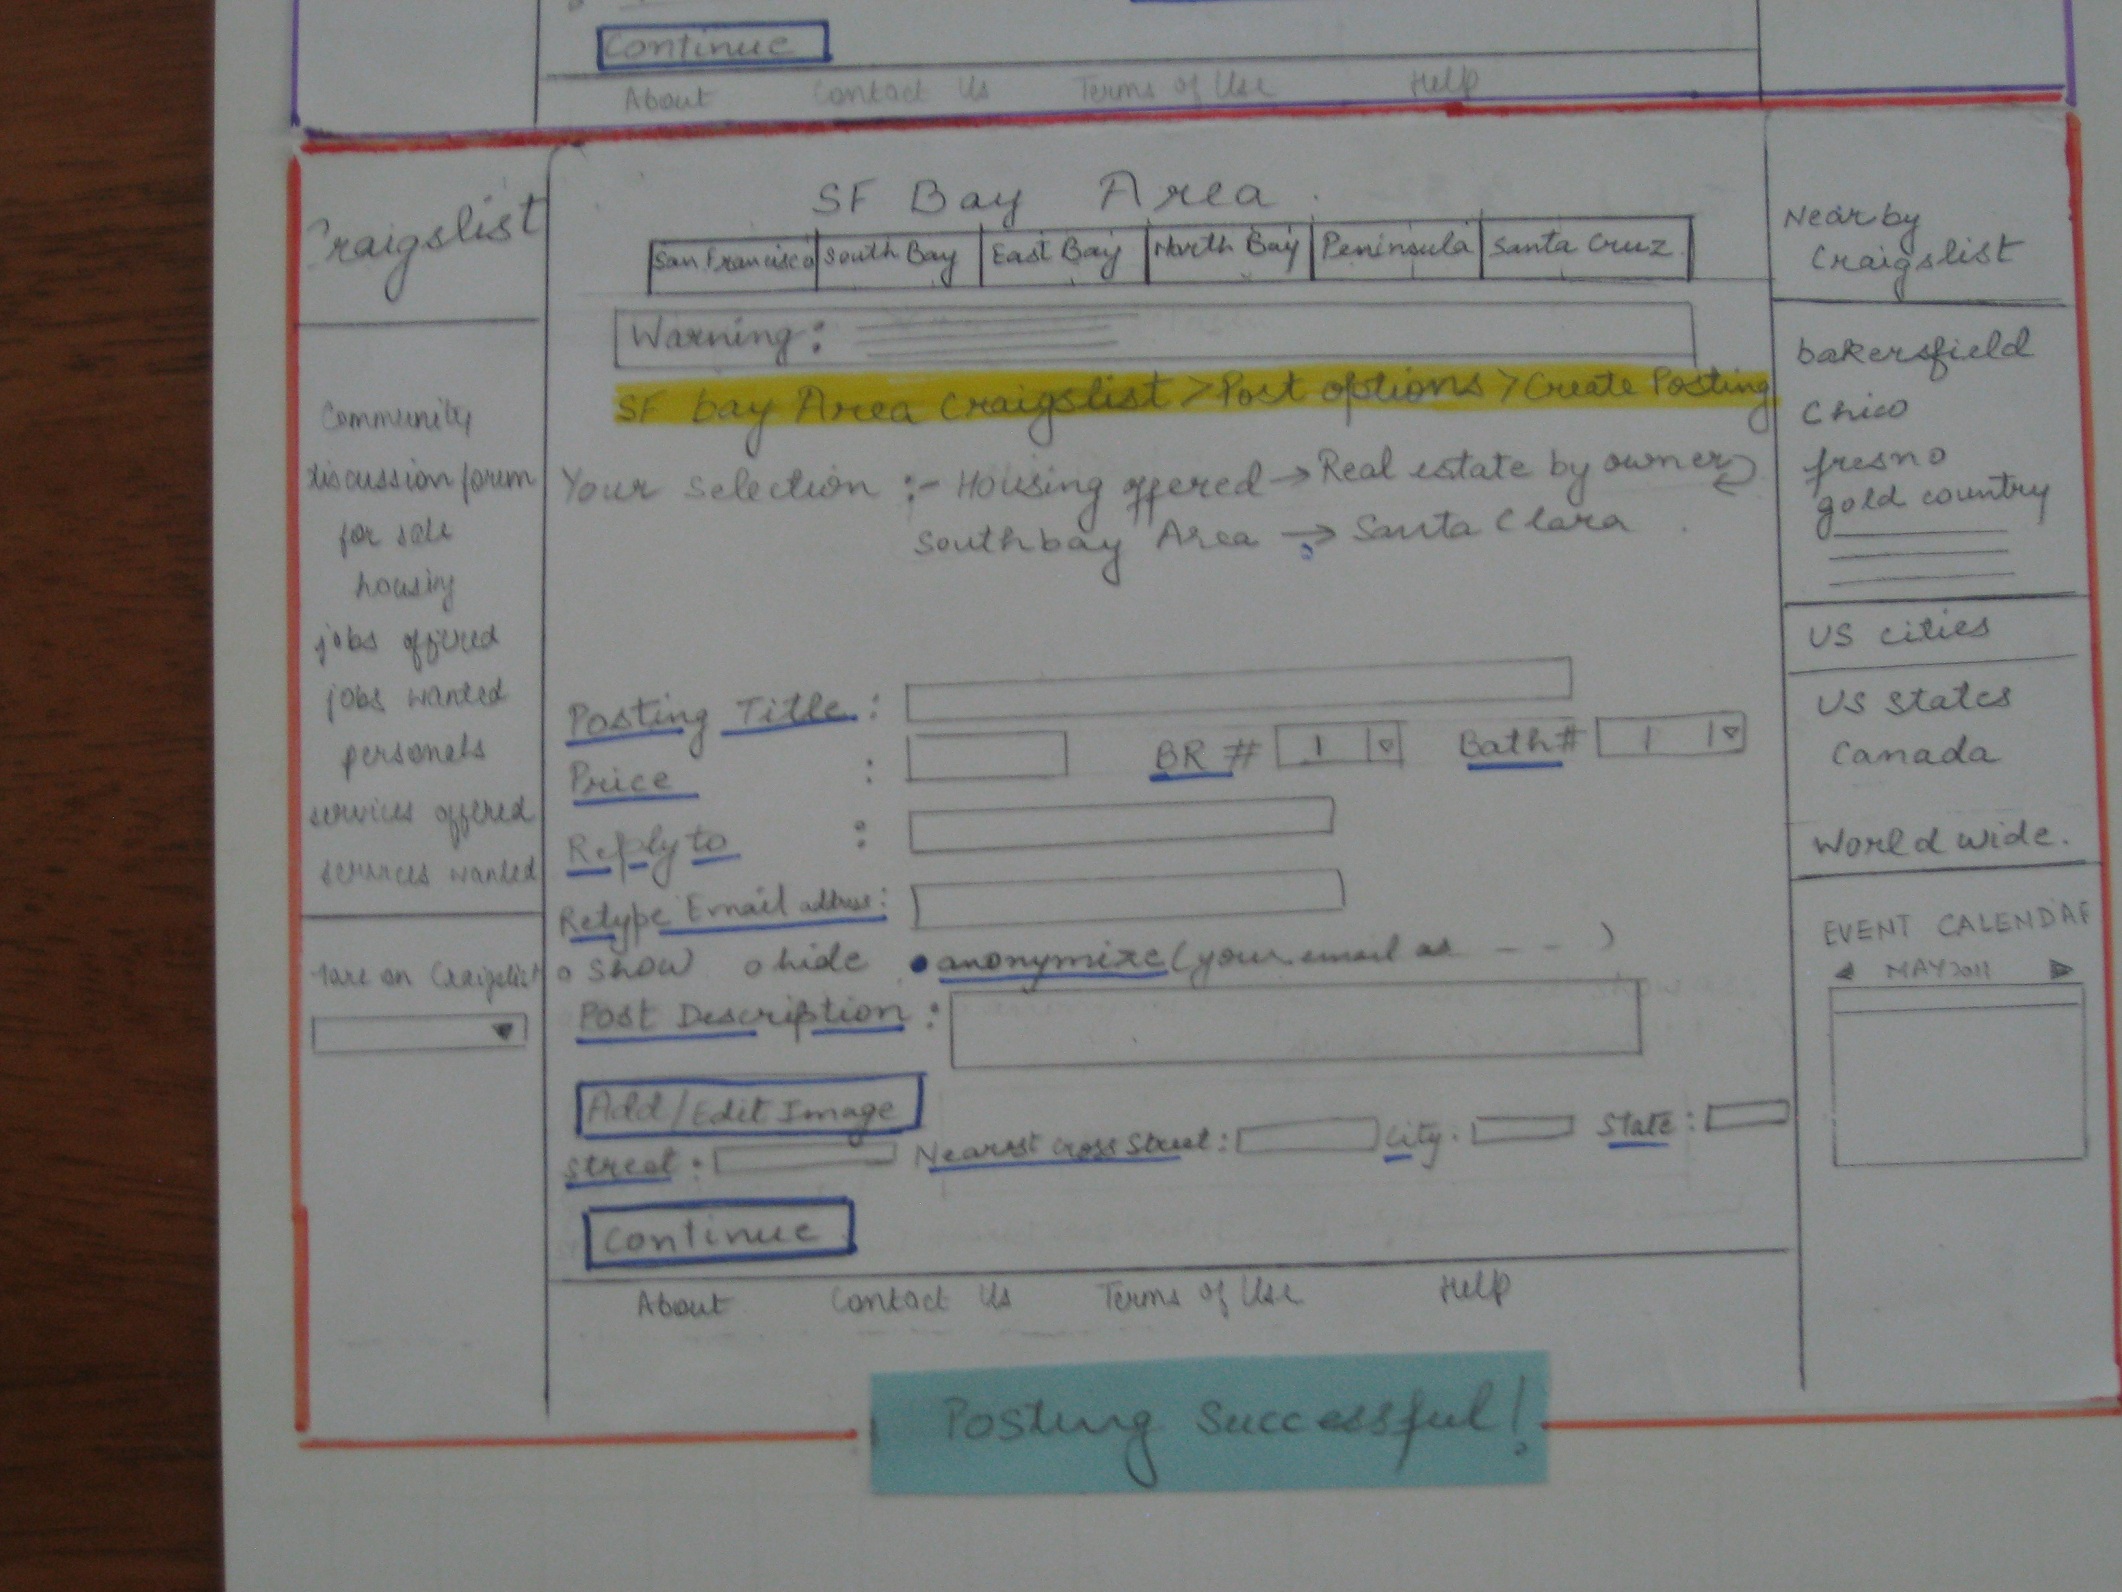 Continue
About Contact Us Terms of Use Help
Craigslist
Community
discussion forum
for sale
housing
jobs offered
jobs wanted
personals
services offered
services wanted
on Craigslist
SF Bay Area
San Francisco South Bay East Bay North Bay Peninsula Santa Cruz
Warning:
SF bay Area Craigslist > Post options > Create Posting
Your Selection :- Housing offered → Real estate by owner
Southbay Area → Santa Clara
Posting Title :
Price : BR # 1 Bath # 1
Reply to :
Retype Email address:
o show o hide • anonymize (your email as - - - )
Post Description :
Add/Edit Image
Street : Nearest Cross Street : City : State :
Continue
About Contact Us Terms of Use Help
Nearby
Craigslist
bakersfield
Chico
fresno
gold country
US cities
US states
Canada
World wide.
EVENT CALENDAR
MAY 2011
Posting Successful!